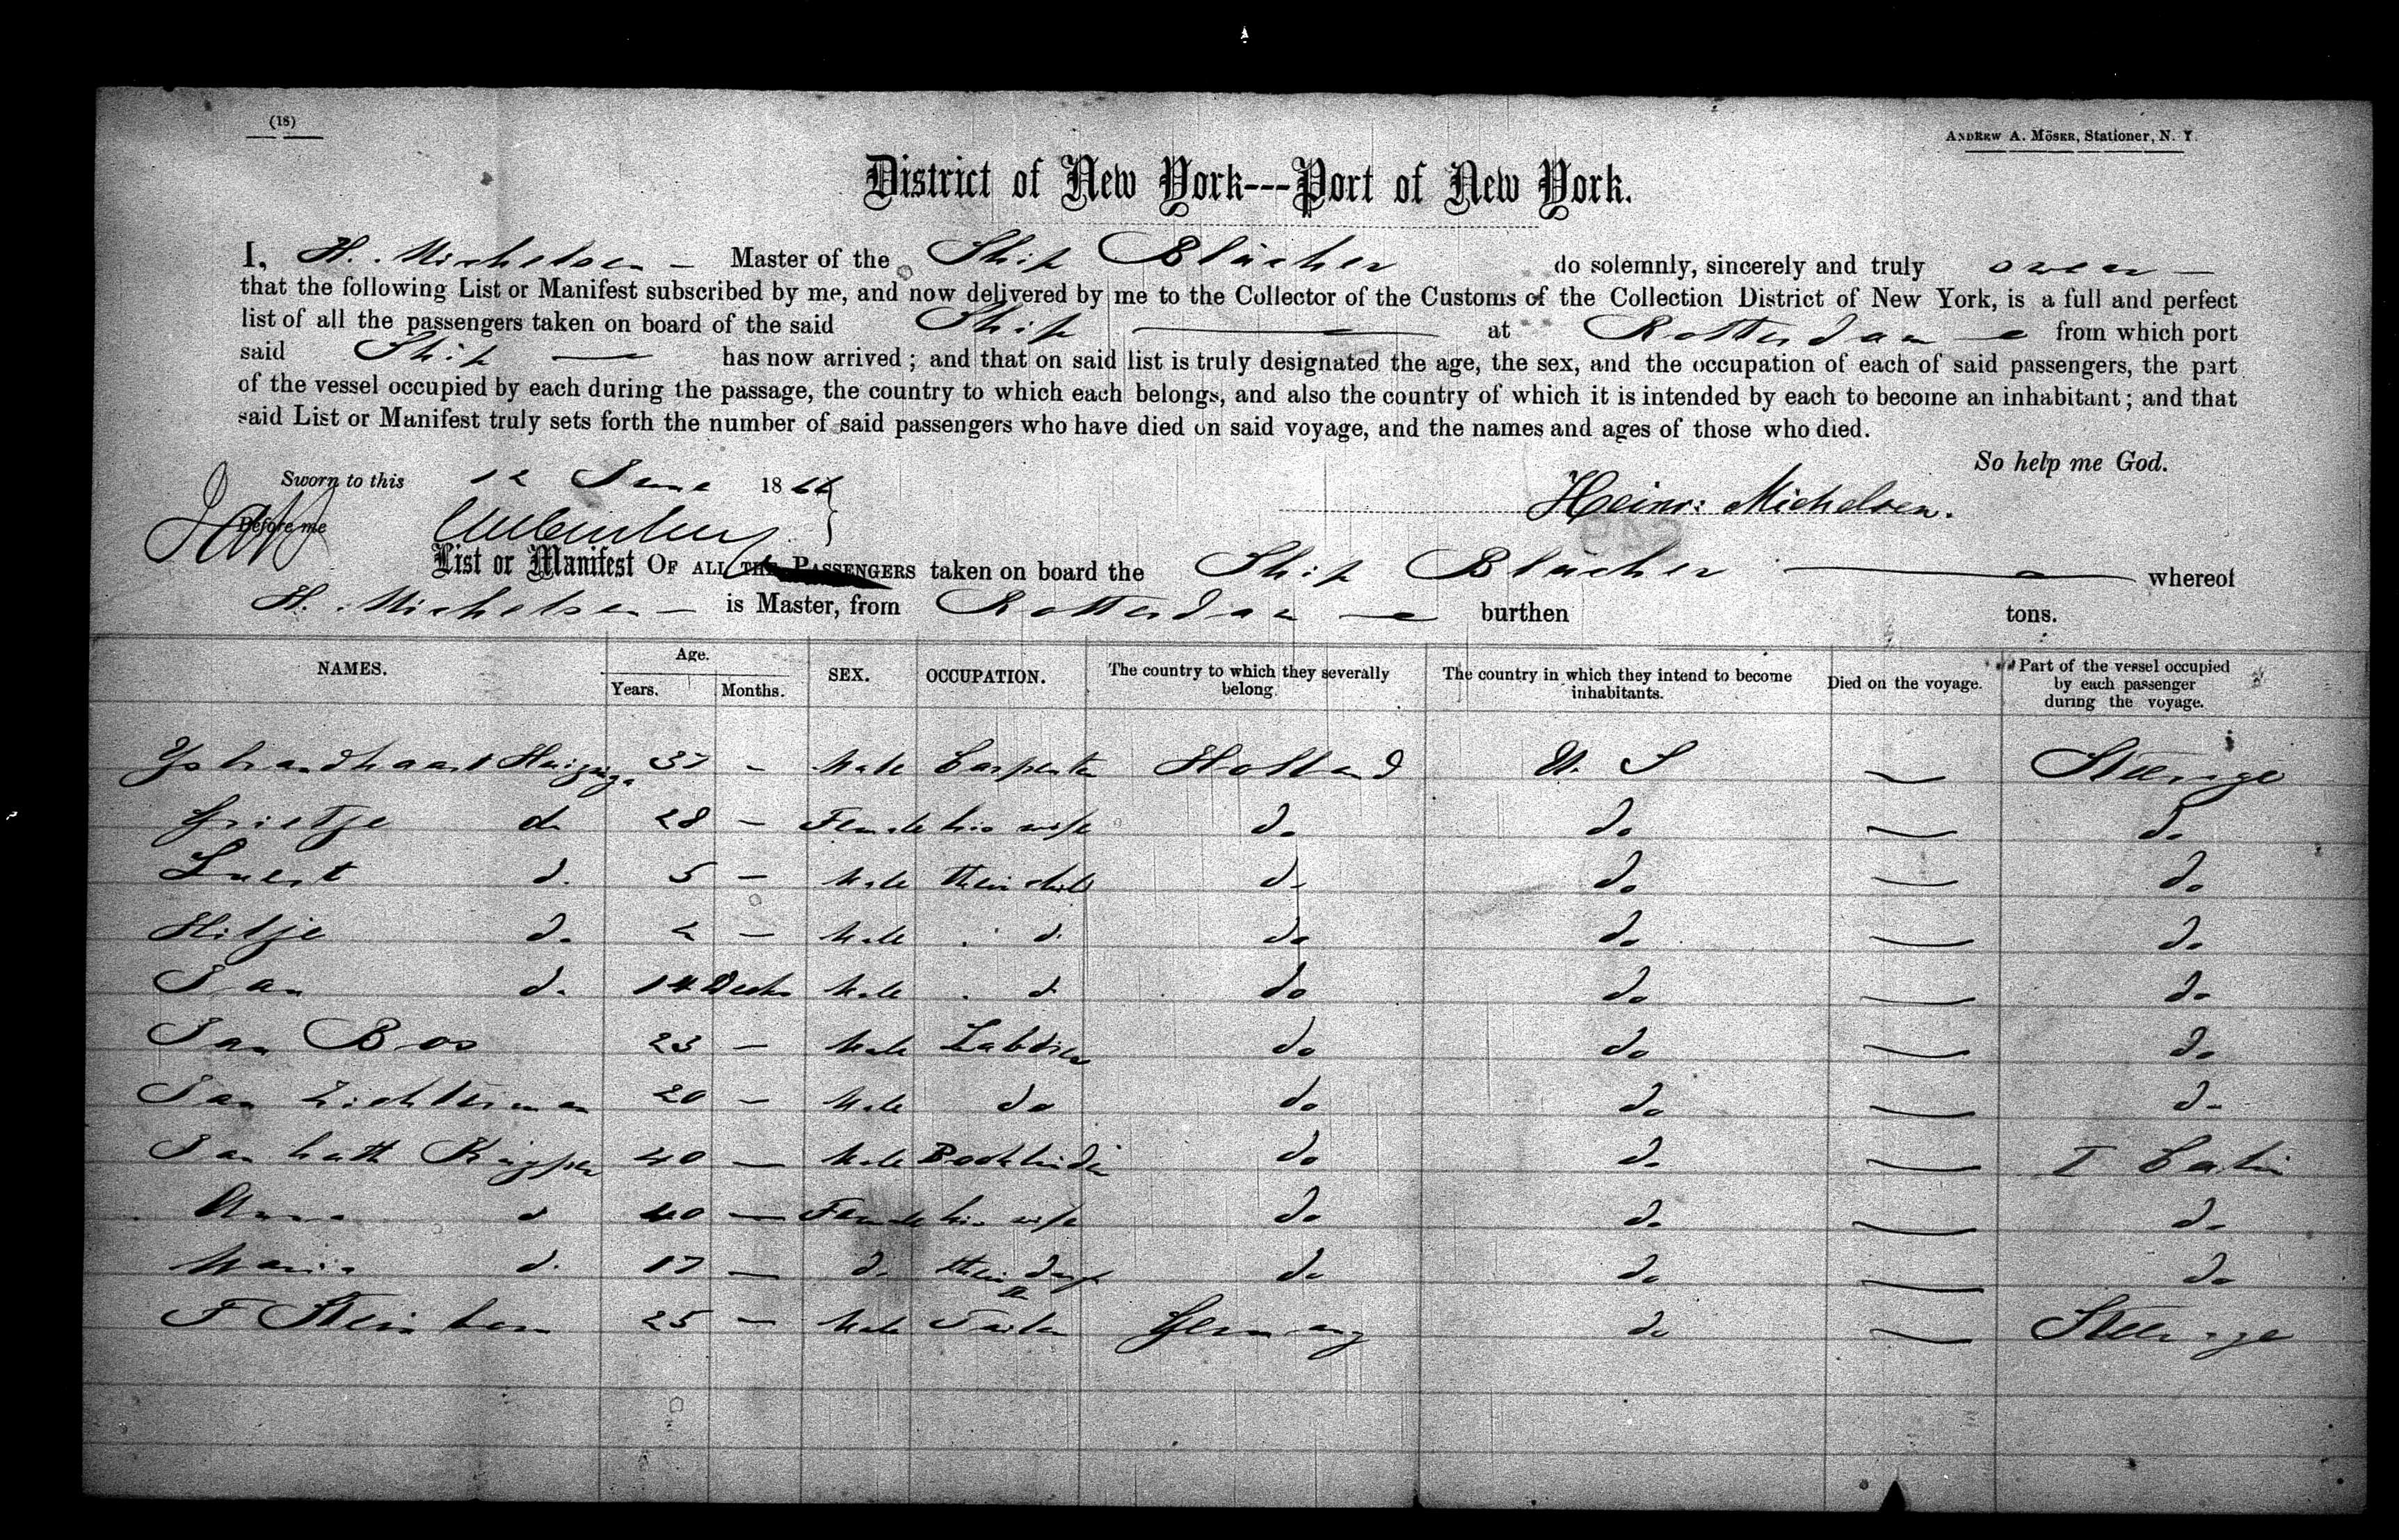 (18)
ANDREW A. MÖSER, Stationer, N. Y.
District of New York---Port of New York.
I, H. Michelsen — Master of the Ship Blücher do solemnly, sincerely and truly swear —
that the following List or Manifest subscribed by me, and now delivered by me to the Collector of the Customs of the Collection District of New York, is a full and perfect
list of all the passengers taken on board of the said Ship — at Rotterdam — from which port
said Ship — has now arrived; and that on said list is truly designated the age, the sex, and the occupation of each of said passengers, the part
of the vessel occupied by each during the passage, the country to which each belongs, and also the country of which it is intended by each to become an inhabitant; and that
said List or Manifest truly sets forth the number of said passengers who have died on said voyage, and the names and ages of those who died.
So help me God.
Sworn to this 12 June 1866
Heinr: Michelsen.
Before me
List or Manifest OF ALL THE PASSENGERS taken on board the Ship Blücher — whereof
H. Michelsen — is Master, from Rotterdam — burthen tons.
NAMES. Age. Years. Months. SEX. OCCUPATION. The country to which they severally belong. The country in which they intend to become inhabitants. Died on the voyage. Part of the vessel occupied by each passenger during the voyage.
Huizinga 37 — Male Carpenter Holland U. S — Steerage
Grietje do 28 — Female his wife do do — do
Luert do 5 — Male their child do do — do
Hitje do 2 — Male do do do — do
Jan do 14 Male do do do — do
Jan Bos 23 — Male Laborer do do — do
Jan Lichterman 20 — Male do do do — do
Jan Kuyper 40 — Male Bookbinder do do — I Cabin
Anna do 40 — Female his wife do do — do
Maria do 17 — do their daugh do do — do
F Steinham 25 — Male Tailor Germany do — Steerage